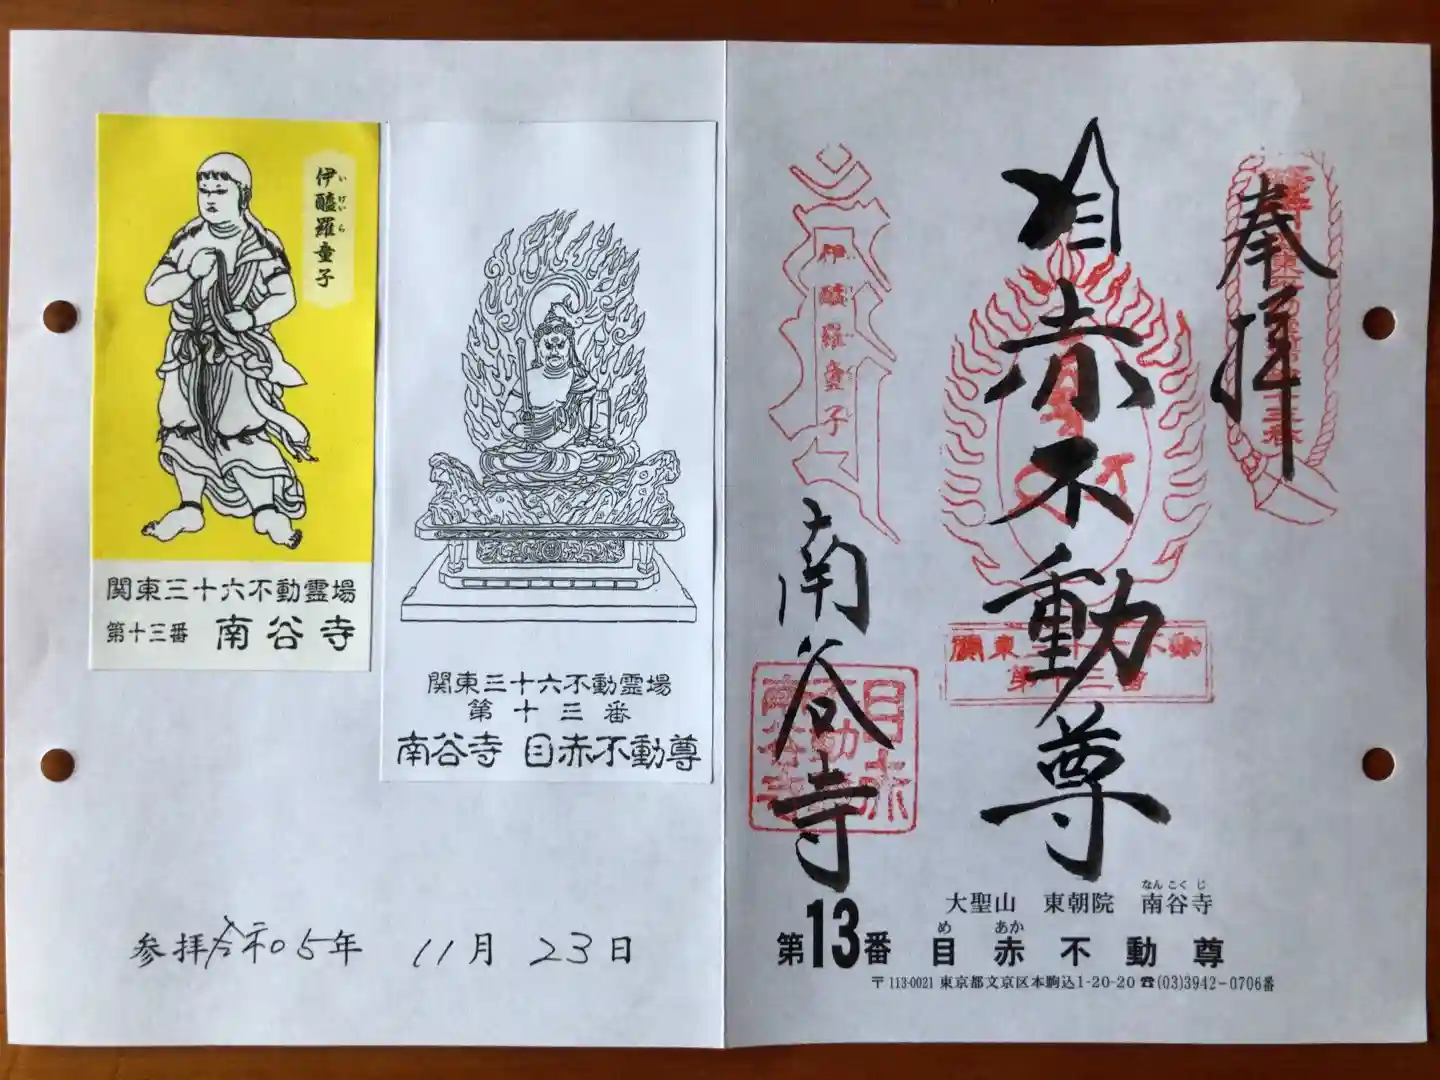 奉拝
目赤不動尊
南谷寺
伊醯羅童子
関東三十六不動
第十三番
目赤
不動
南谷寺
なんこくじ
大聖山 東朝院 南谷寺
め あか
第13番 目赤不動尊
〒113-0021 東京都文京区本駒込1-20-20 ☎(03)3942-0706番
いけいら
伊醯羅童子
関東三十六不動霊場
第十三番 南谷寺
関東三十六不動霊場
第十三番
南谷寺 目赤不動尊
参拝令和05年 11月 23日